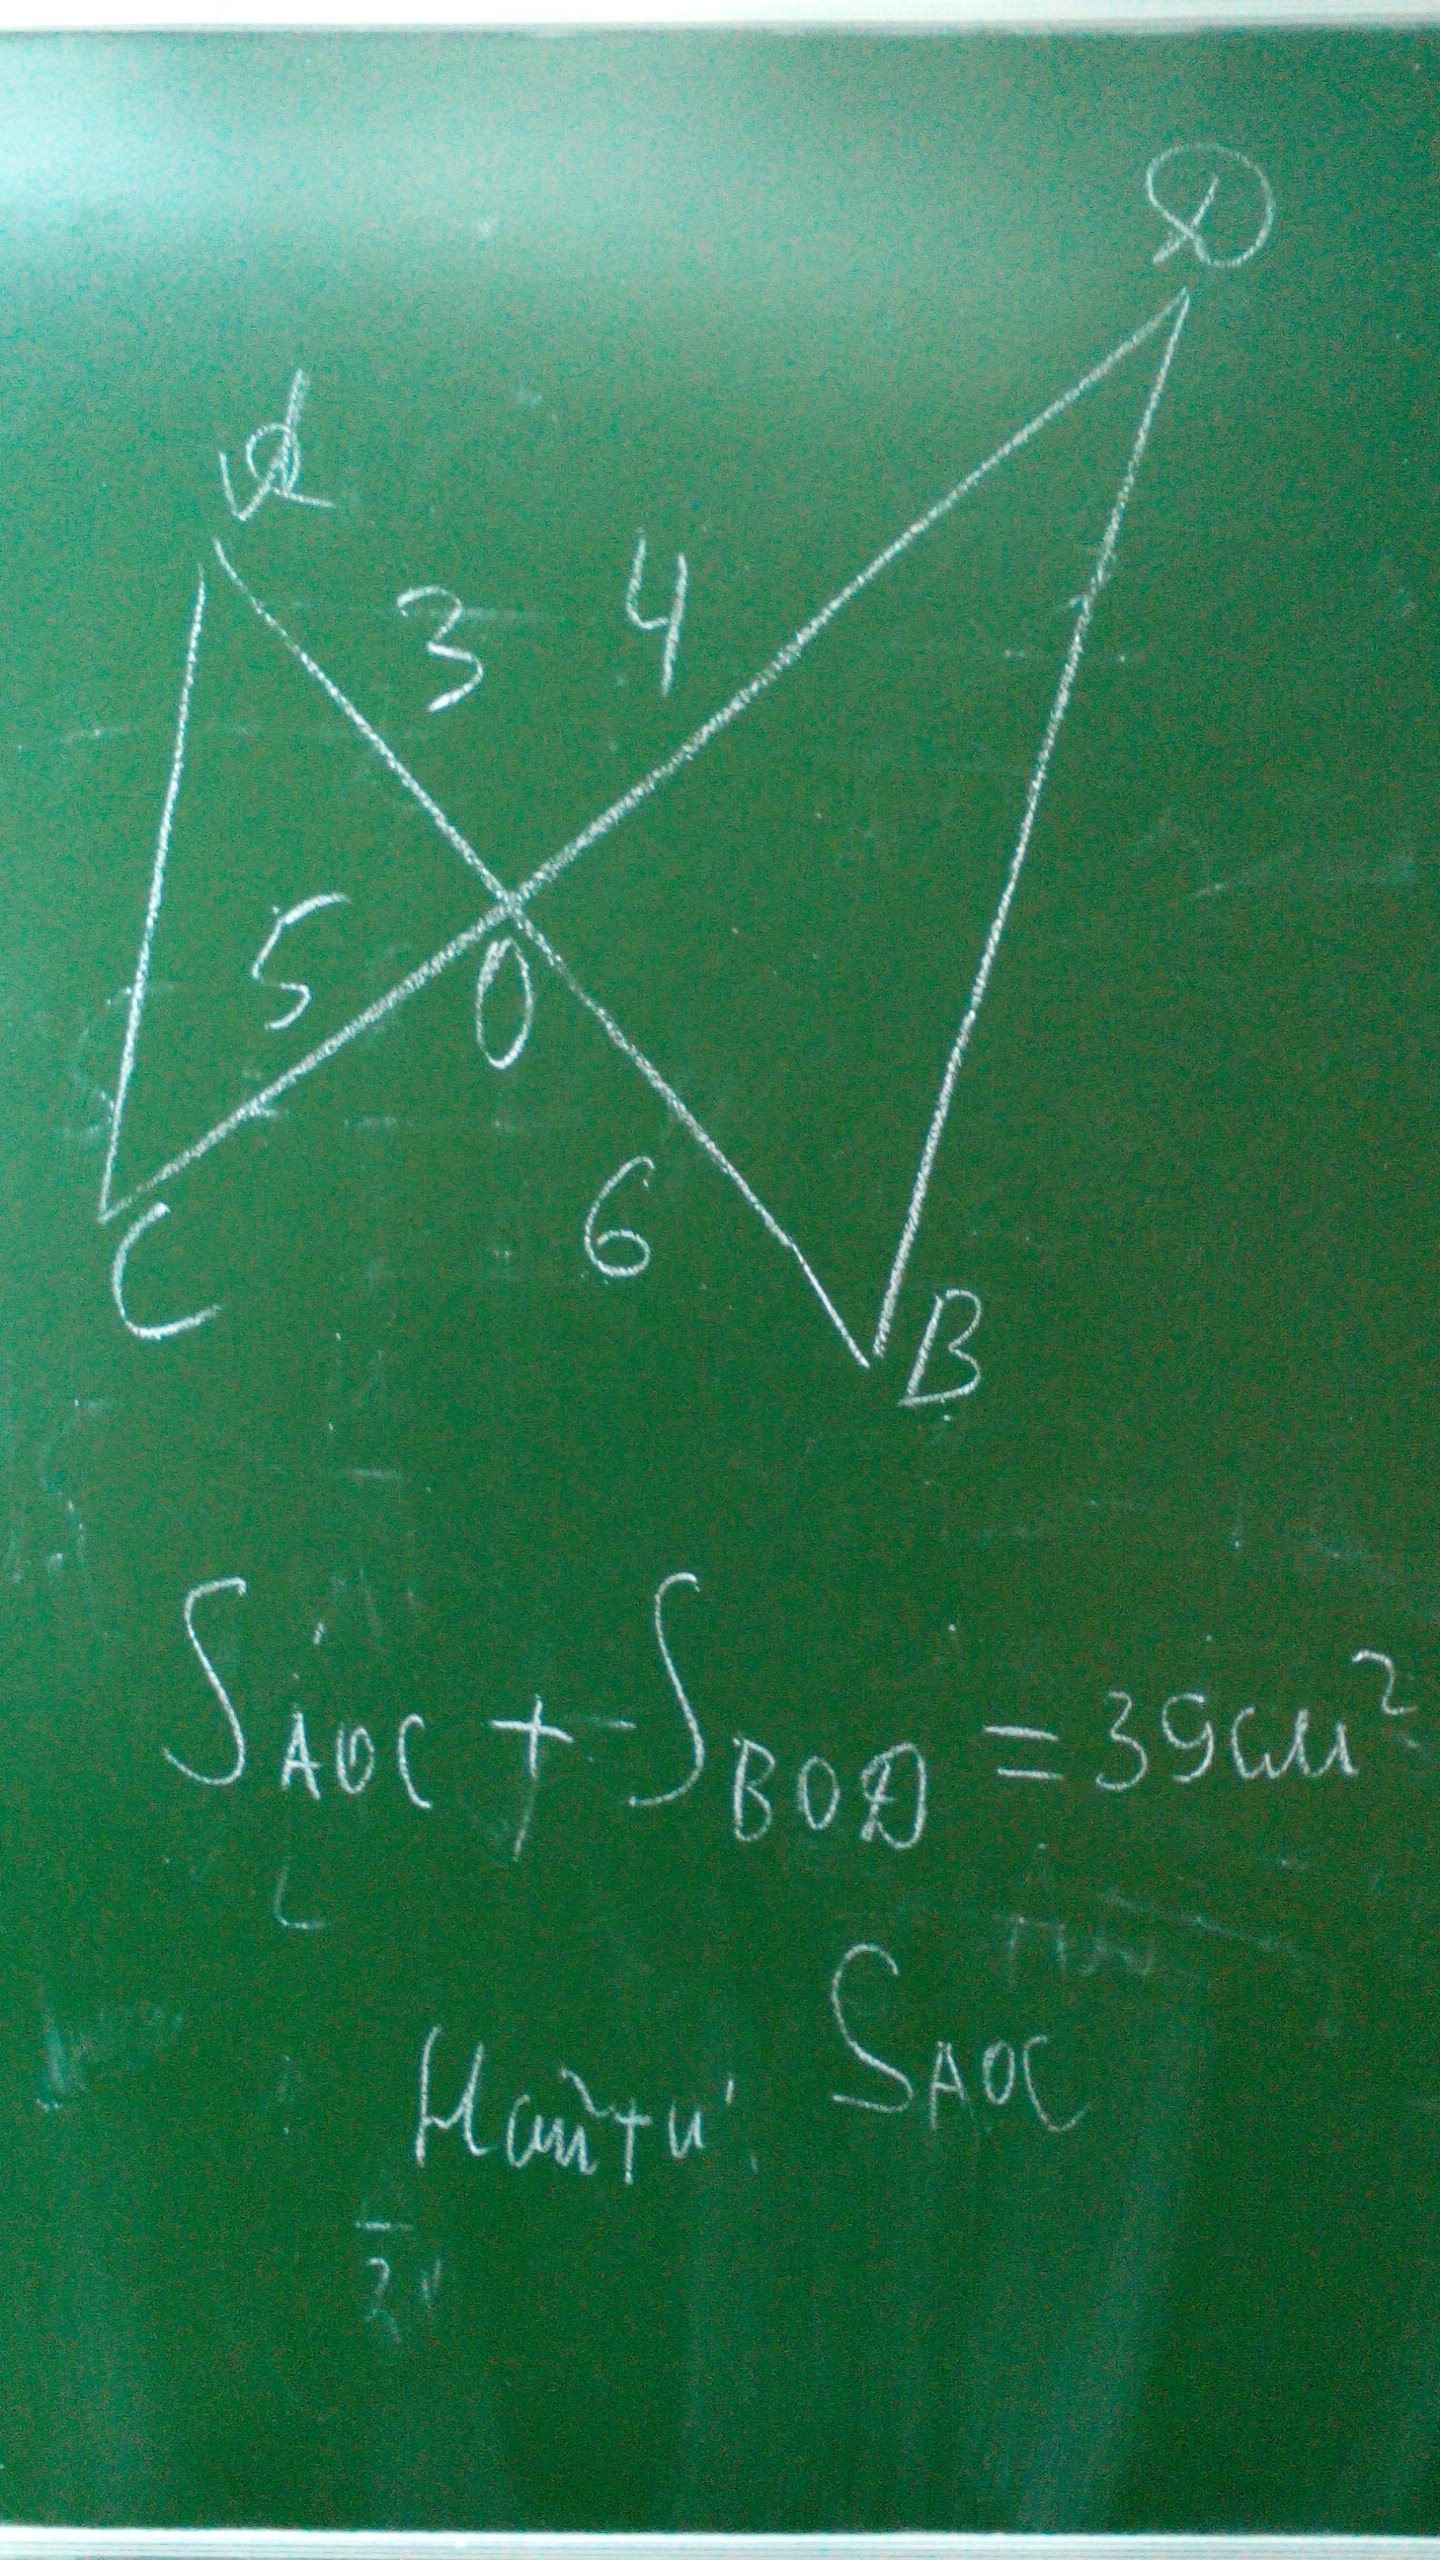 D
A
3 4
5
O
6
C
B
S AOC + S BOD = 39 см²
Найти: S AOC